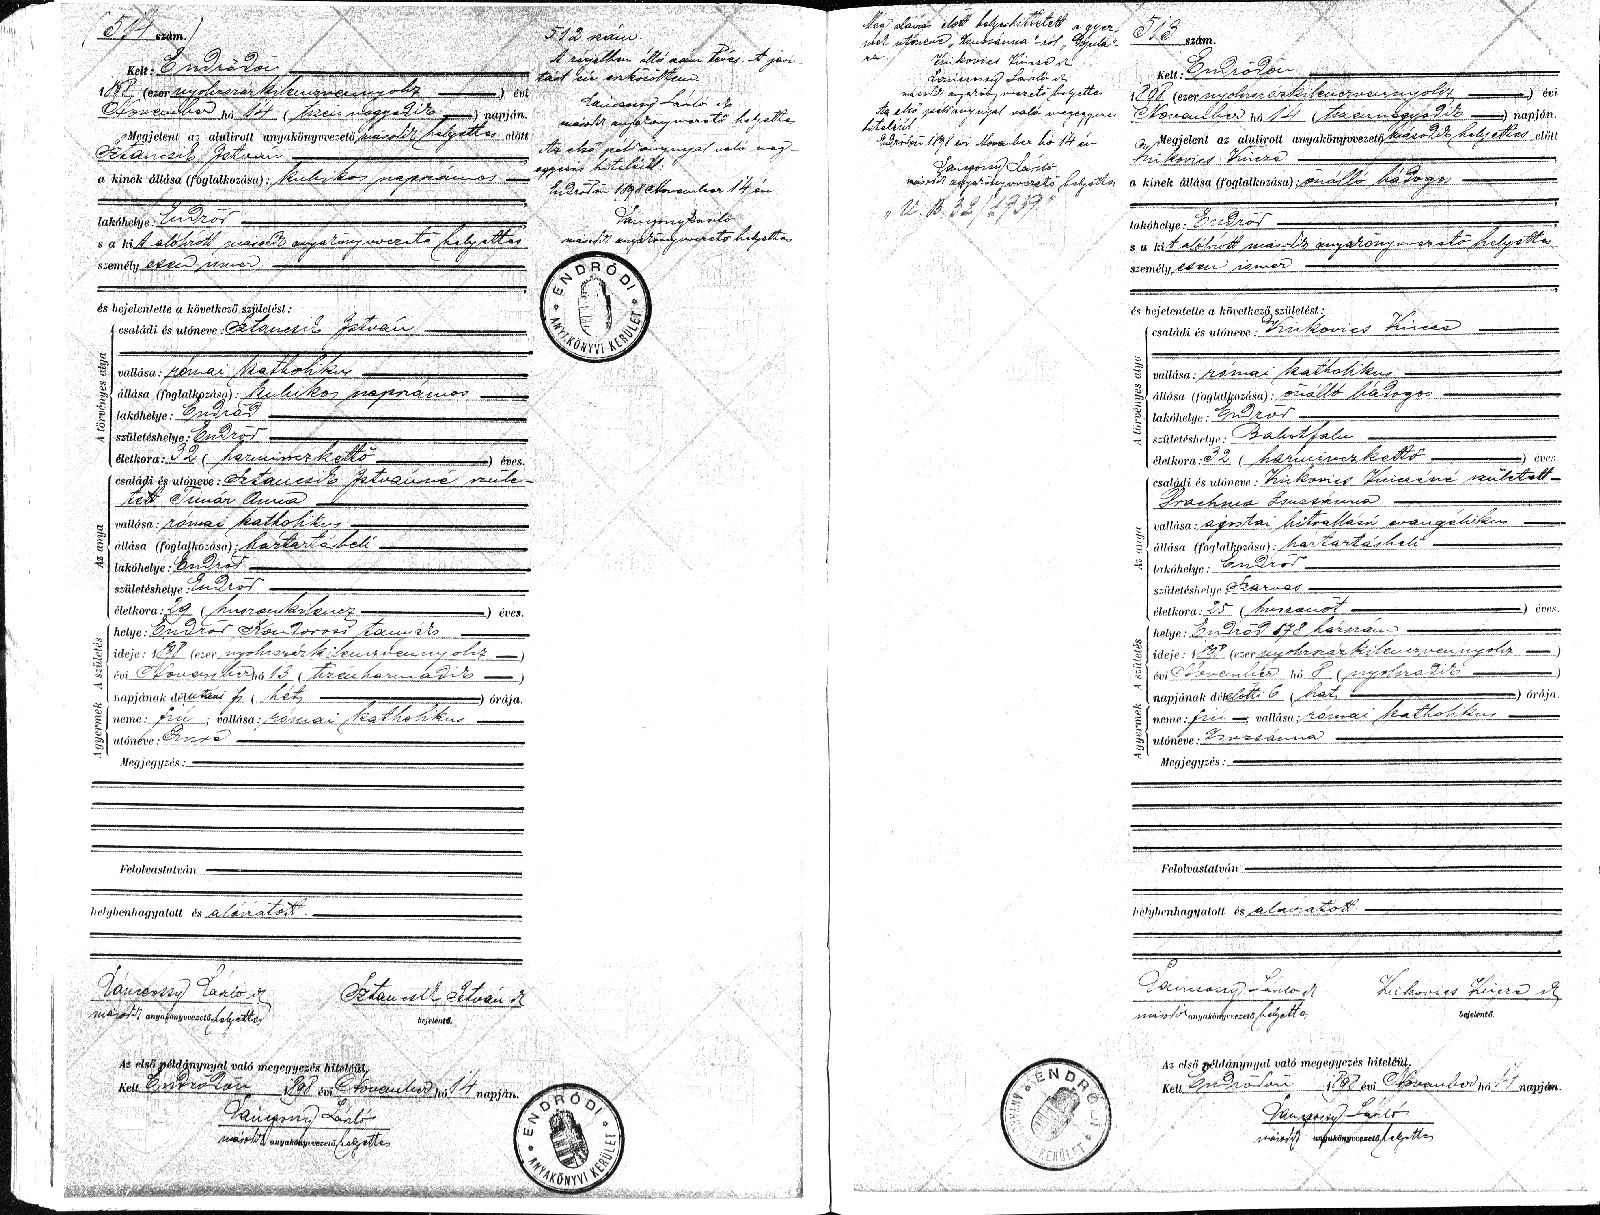 514 szám.
Kelt: Endrődön
1898 (ezer nyolcszázkilenczvennyolcz) évi
November hó 14 (tizennegyedik) napján.
Megjelent az alulirott anyakönyvvezető másodk helyettes előtt
Sztancsik István
a kinek állása (foglalkozása): kubikos napszámos
lakóhelye: Endrőd
s a kit alólirott másodk anyakönyvvezető helyettes
személyesen ismer
és bejelentette a következő születést:
A törvényes atya
családi és utóneve: Sztancsik István
vallása: római katholikus
állása (foglalkozása): kubikos napszámos
lakóhelye: Endrőd
születéshelye: Endrőd
életkora: 32 (harminczkettő) éves.
Az anya
családi és utóneve: Sztancsik Istvánné szüle-
tett Timár Anna
vallása: római katholikus
állása (foglalkozása): háztartásbeli
lakóhelye: Endrőd
születéshelye: Endrőd
életkora: 29 (huszonkilencz) éves.
A gyermek A születés
helye: Endrőd Kondorosi tanyás
ideje: 1898 (ezer nyolcszázkilenczvennyolcz)
évi November hó 13 (tizenharmadik)
napjának délutáni 7 (hét) órája.
neme: fiú; vallása: római katholikus
utóneve: Imre
Megjegyzés:
Felolvastatván
helybenhagyatott és aláiratott.
Lánczossy László sk Sztancsik István sk
másodk anyakönyvvezető helyettes bejelentő.
Az első példánynyal való megegyezés hiteléül.
Kelt Endrődön 1898 évi November hó 14 napján.
Lánczossy László
másodk anyakönyvvezető helyettes
ENDRŐDI ANYAKÖNYVI KERÜLET
512 szám
A rovatban álló nem téves. A javi-
tást én eszközöltem
Lánczossy László sk
másodk anyakönyvvezető helyettes
Az első példánynyal való meg-
egyezés hiteléül.
Endrődön 1898 November 14 én
Lánczossy László
másodk anyakönyvvezető helyettes
ENDRŐDI ANYAKÖNYVI KERÜLET
Még aláirás előtt helyesbittetett a gyer-
mek utóneve „Zsuzsánna"-ról „Gyulá"-
ra.
Zsukovics Vincze sk
Lánczossy László sk
másodk anyakönyvvezető helyettes
Az első példánynyal való megegyezés
hiteléül
Endrődön 1898 évi November hó 14 én
Lánczossy László
másodk anyakönyvvezető helyettes
„U. B. 32/1959"
513 szám.
Kelt: Endrődön
1898 (ezer nyolcszázkilenczvennyolcz) évi
November hó 14 (tizennegyedik) napján.
Megjelent az alulirott anyakönyvvezető másodk helyettes előtt
Zsukovics Vincze
a kinek állása (foglalkozása): önálló bádogos
lakóhelye: Endrőd
s a kit alólirott másodk anyakönyvvezető helyettes
személyesen ismer
és bejelentette a következő születést:
A törvényes atya
családi és utóneve: Zsukovics Vincze
vallása: római katholikus
állása (foglalkozása): önálló bádogos
lakóhelye: Endrőd
születéshelye:
életkora: 32 (harminczkettő) éves.
Az anya
családi és utóneve: Zsukovics Vinczéné született
Prachna Zsuzsánna
vallása: ágostai hitvallású evangélikus
állása (foglalkozása): háztartásbeli
lakóhelye: Endrőd
születéshelye Szarvas
életkora: 25 (huszonöt) éves.
A gyermek A születés
helye: Endrőd 178 házszám
ideje: 1898 (ezer nyolcszázkilenczvennyolcz)
évi November hó 8 (nyolczadik)
napjának délelőtti 6 (hat) órája.
neme: fiú; vallása: római katholikus
utóneve: Zsuzsánna
Megjegyzés:
Felolvastatván
helybenhagyatott és aláiratott
Lánczossy László sk Zsukovics Vincze sk
másodk anyakönyvvezető helyettes bejelentő.
Az első példánynyal való megegyezés hiteléül.
Kelt Endrődön 1898 évi November hó 14 napján.
Lánczossy László
másodk anyakönyvvezető helyettes
ENDRŐDI ANYAKÖNYVI KERÜLET